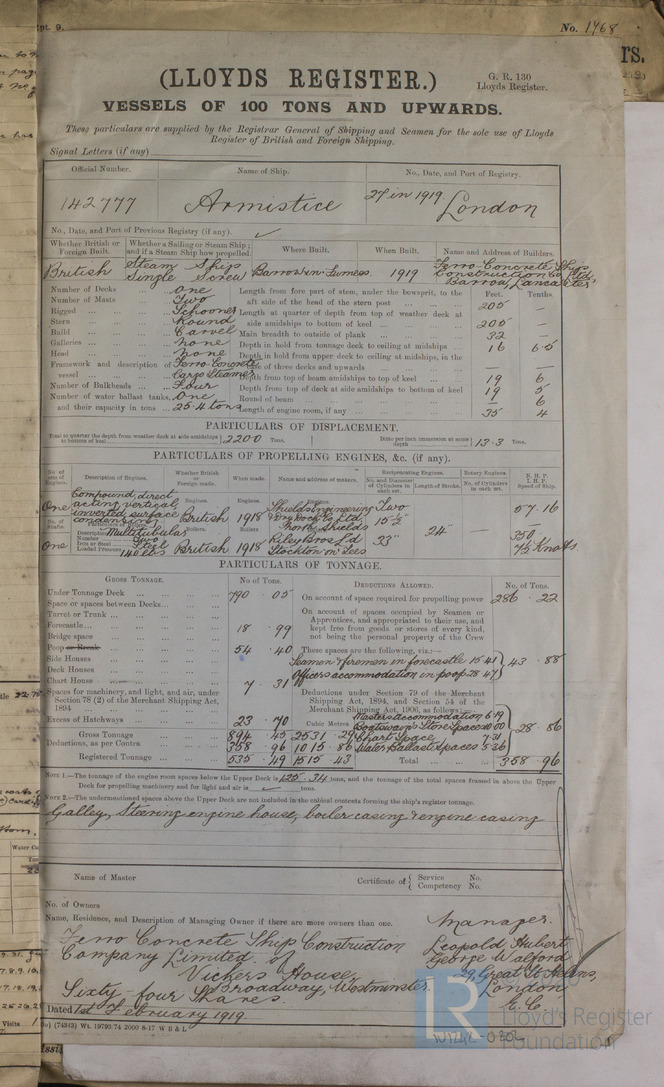 pt. 9.
No. 1468
rs.
(LLOYDS REGISTER.)
G. R. 130
Lloyds Register.
VESSELS OF 100 TONS AND UPWARDS.
These particulars are supplied by the Registrar General of Shipping and Seamen for the sole use of Lloyds
Register of British and Foreign Shipping.
Signal Letters (if any)
Official Number. Name of Ship. No., Date, and Port of Registry.
142777 Armistice 27 in 1919. London
No., Date, and Port of Previous Registry (if any).
Whether British or Foreign Built. Whether a Sailing or Steam Ship; and if a Steam Ship how propelled. Where Built. When Built. Name and Address of Builders.
British Steam Ship Single Screw Barrow in Furness 1919 Ferro-Concrete Ship Construction Co Ltd, Barrow, Lancaster
Number of Decks One
Number of Masts Two
Rigged Schooner
Stern Round
Build Carvel
Galleries None
Head None
Framework and description of vessel Ferro-Concrete Cargo Steamer
Number of Bulkheads Four
Number of water ballast tanks, and their capacity in tons One 25.4 tons
Feet. Tenths.
Length from fore part of stem, under the bowsprit, to the aft side of the head of the stern post 205 —
Length at quarter of depth from top of weather deck at side amidships to bottom of keel 205 —
Main breadth to outside of plank 32 —
Depth in hold from tonnage deck to ceiling at midships 16 6.5
Depth in hold from upper deck to ceiling at midships, in the case of three decks and upwards — —
Depth from top of beam amidships to top of keel 19 6
Depth from top of deck at side amidships to bottom of keel 19 5
Round of beam — 6
Length of engine room, if any 35 4
PARTICULARS OF DISPLACEMENT.
Total to quarter the depth from weather deck at side amidships to bottom of keel 2200 Tons.
Ditto per inch immersion at same depth 13.3 Tons.
PARTICULARS OF PROPELLING ENGINES, &c. (if any).
No. of sets of Engines. Description of Engines. Whether British or Foreign made. When made. Name and address of makers. Reciprocating Engines. Rotary Engines. N. H. P. I. H. P. Speed of Ship.
No. and Diameter of Cylinders in each set. Length of Stroke. No. of Cylinders in each set.
One Compound, direct acting vertical, inverted surface condensing Engines. British Engines. 1918 Engines. Shields Engineering & Dry Dock Co Ltd, North Shields Two 15½" 33" 24" 57.16
No. of Shafts. One
Description Multitubular
Number Two
Iron or Steel Steel
Loaded Pressure 140 lbs
Boilers. British Boilers 1918 Riley Bros Ld Stockton on Tees 350 7½ Knots
PARTICULARS OF TONNAGE.
GROSS TONNAGE. No of Tons.
Under Tonnage Deck 790.05
Space or spaces between Decks
Turret or Trunk
Forecastle 18.99
Bridge space
Poop or Break 54.40
Side Houses
Deck Houses
Chart House 7.31
Spaces for machinery, and light, and air, under Section 78 (2) of the Merchant Shipping Act, 1894
Excess of Hatchways 23.70
Cubic Metres
Gross Tonnage 894.45 2531.29
Deductions, as per Contra 358.96 1015.86
Registered Tonnage 535.49 1515.43
DEDUCTIONS ALLOWED. No. of Tons.
On account of space required for propelling power 286.22
On account of spaces occupied by Seamen or Apprentices, and appropriated to their use, and kept free from goods or stores of every kind, not being the personal property of the Crew
These spaces are the following, viz.:—
Seamen & firemen in forecastle 15.41
Officers accommodation in poop 28.47
43.88
Deductions under Section 79 of the Merchant Shipping Act, 1894, and Section 54 of the Merchant Shipping Act, 1906, as follows:—
Masters accommodation 6.19
Boatswain's Store Space 10.00
Chart Space 7.31
Water Ballast Spaces 5.36
28.86
Total 358.96
NOTE 1.—The tonnage of the engine room spaces below the Upper Deck is 125.34 tons, and the tonnage of the total spaces framed in above the Upper
Deck for propelling machinery and for light and air is tons.
NOTE 2.—The undermentioned spaces above the Upper Deck are not included in the cubical contents forming the ship's register tonnage.
Galley, Steering engine house, boiler casing & engine casing
Name of Master
Certificate of Service No.
Competency No.
No. of Owners
Name, Residence, and Description of Managing Owner if there are more owners than one.
Ferro Concrete Ship Construction
Company Limited. of
Vickers House,
Broadway, Westminster.
Sixty-four Shares.
Manager.
Leopold Hubert
George Walford
29, Great St Helens,
London,
E.C.
Dated 1st February 1919.
(74343) Wt. 19793/74 2000 8-17 W B & L
LR
Lloyd's Register
Foundation